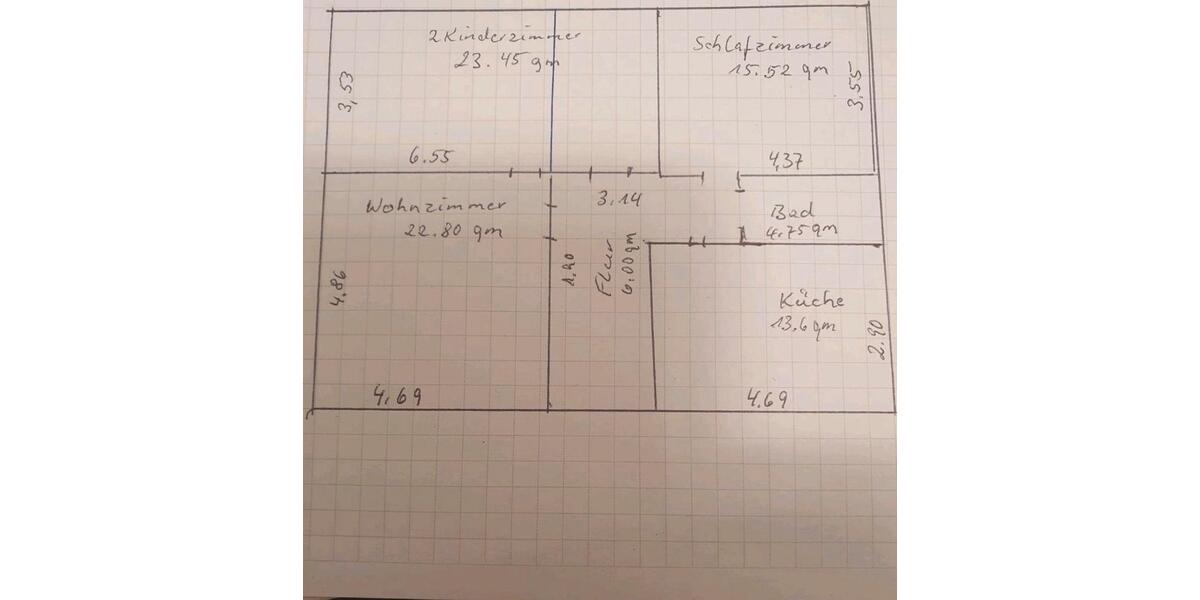 2 Kinderzimmer
23.45 qm
3,53
6.55
Schlafzimmer
15.52 qm
3.55
4,37
Wohnzimmer
22.80 qm
4.86
4.69
3.14
1.90
Flur
6.00 qm
Bad
4.75 qm
Küche
13.6 qm
2.90
4.69